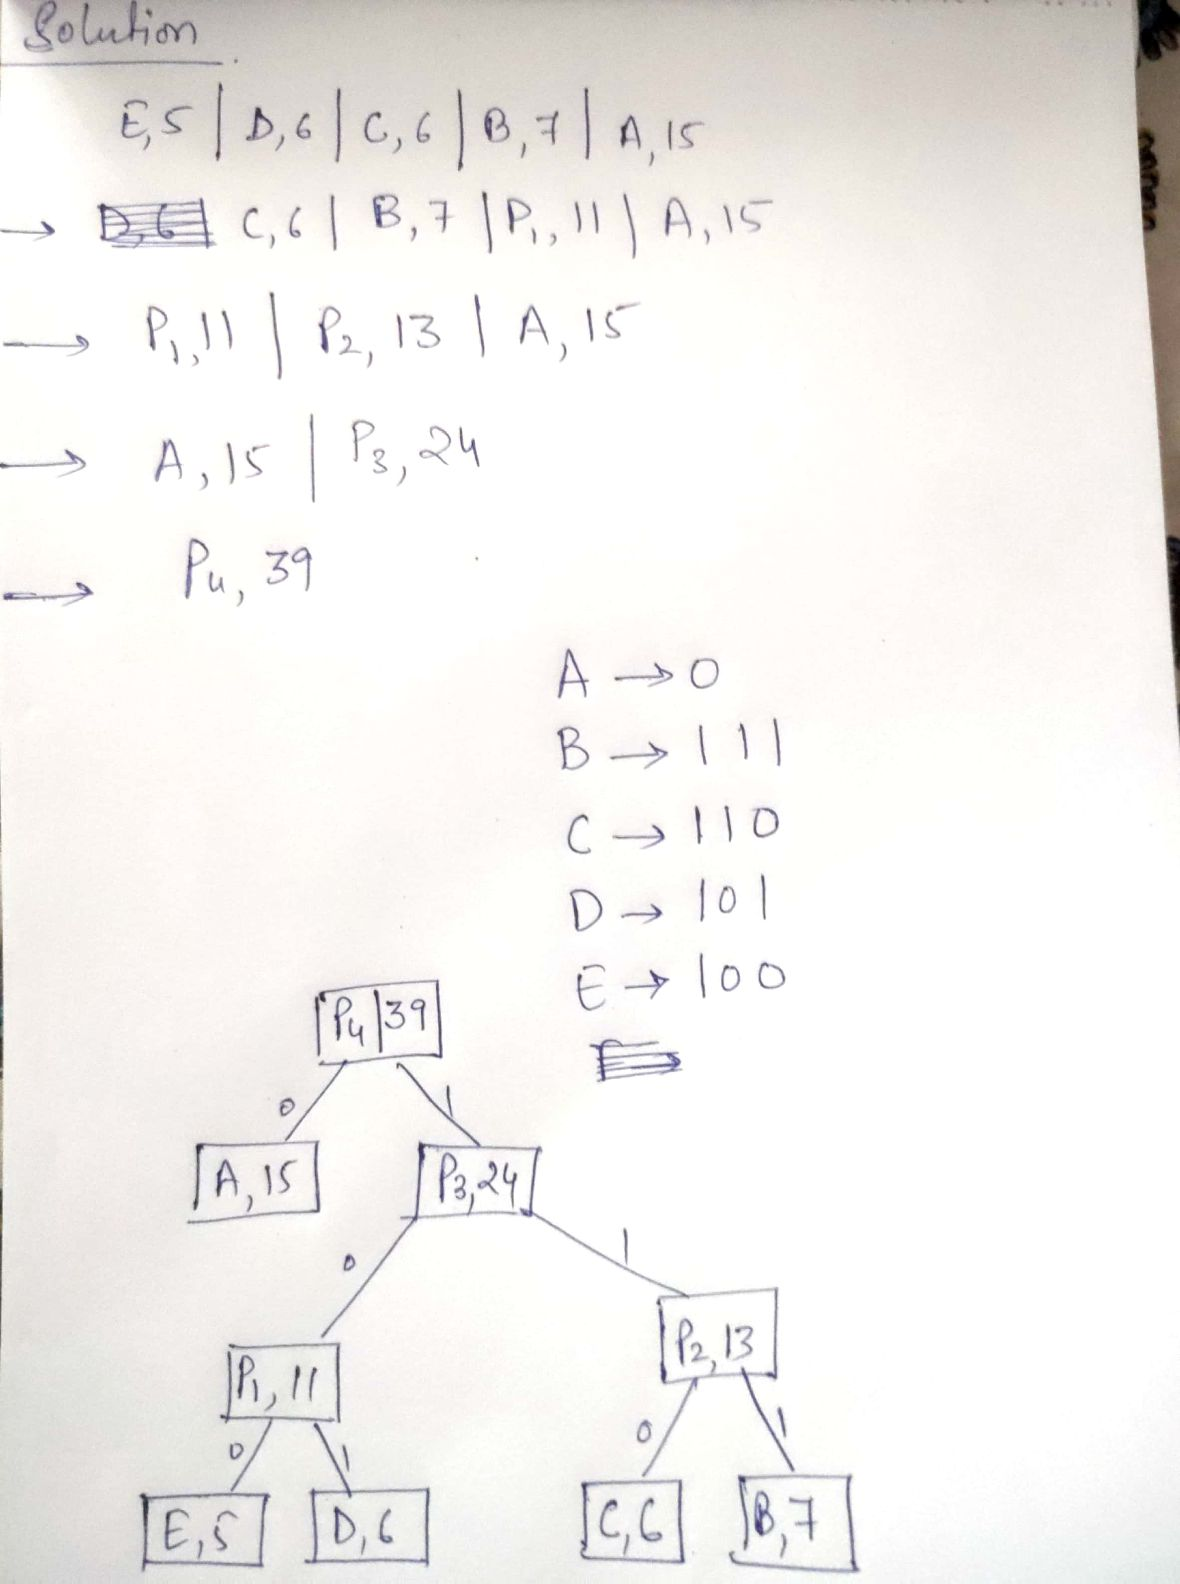 Solution
E,5 | D,6 | C,6 | B,7 | A,15
→ C,6 | B,7 | P₁,11 | A,15
→ P₁,11 | P₂,13 | A,15
→ A,15 | P₃,24
→ P₄,39
A → 0
B → 111
C → 110
D → 101
E → 100
P₄|39
0 1
A,15 P₃,24
0 1
P₁,11 P₂,13
0 1 0 1
E,5 D,6 C,6 B,7